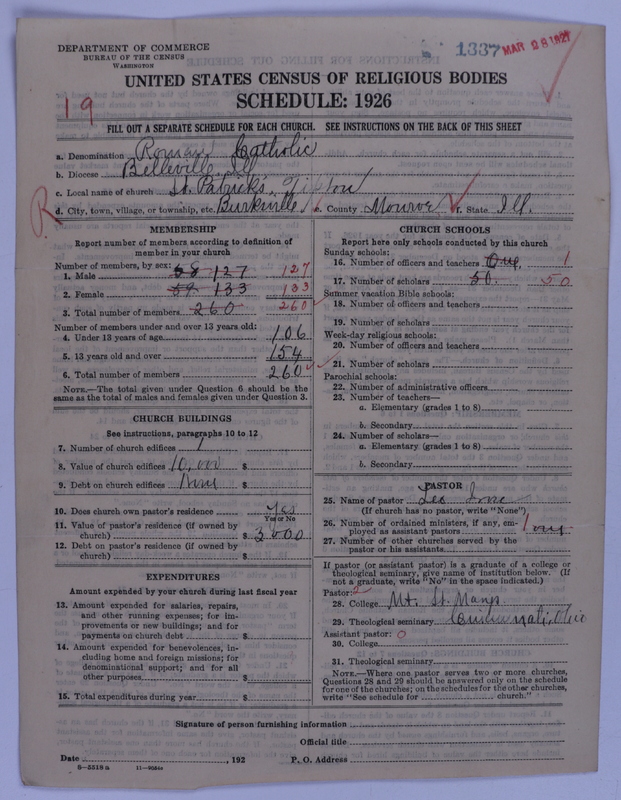 DEPARTMENT OF COMMERCE
BUREAU OF THE CENSUS
WASHINGTON
1337 MAR 28 1927
UNITED STATES CENSUS OF RELIGIOUS BODIES
SCHEDULE: 1926
19
FILL OUT A SEPARATE SCHEDULE FOR EACH CHURCH. SEE INSTRUCTIONS ON THE BACK OF THIS SHEET
a. Denomination Roman Catholic
b. Diocese Belleville, Ill
c. Local name of church St. Patrick's, Tipton
R
d. City, town, village, or township, etc. Burksville e. County Monroe f. State Ill.
MEMBERSHIP
Report number of members according to definition of
member in your church
Number of members, by sex:
1. Male 68 127 127
2. Female 59 133 133
3. Total number of members 260 260
Number of members under and over 13 years old:
4. Under 13 years of age 106
5. 13 years old and over 154
6. Total number of members 260
NOTE.—The total given under Question 6 should be the
same as the total of males and females given under Question 3.
CHURCH BUILDINGS
See instructions, paragraphs 10 to 12
7. Number of church edifices 1
8. Value of church edifices 10,000 $
9. Debt on church edifices None $
10. Does church own pastor's residence Yes
Yes or No
11. Value of pastor's residence (if owned by
church) $ 3000
12. Debt on pastor's residence (if owned by
church) $
EXPENDITURES
Amount expended by your church during last fiscal year
13. Amount expended for salaries, repairs,
and other running expenses; for im-
provements or new buildings; and for
payments on church debt $
14. Amount expended for benevolences, in-
cluding home and foreign missions; for
denominational support; and for all
other purposes $
15. Total expenditures during year $
CHURCH SCHOOLS
Report here only schools conducted by this church
Sunday schools:
16. Number of officers and teachers One 1
17. Number of scholars 50. 50
Summer vacation Bible schools:
18. Number of officers and teachers
19. Number of scholars
Week-day religious schools:
20. Number of officers and teachers
21. Number of scholars
Parochial schools:
22. Number of administrative officers
23. Number of teachers—
a. Elementary (grades 1 to 8)
b. Secondary
24. Number of scholars—
a. Elementary (grades 1 to 8)
b. Secondary
PASTOR
25. Name of pastor Leo
(If church has no pastor, write "None")
26. Number of ordained ministers, if any, em-
ployed as assistant pastors
27. Number of other churches served by the
pastor or his assistants
If pastor (or assistant pastor) is a graduate of a college or
theological seminary, give name of institution below. (If
not a graduate, write "No" in the space indicated.)
Pastor: 2
28. College Mt. St. Marys
29. Theological seminary Cincinnati, Ohio
Assistant pastor: 0
30. College
31. Theological seminary
NOTE.—Where one pastor serves two or more churches,
Questions 28 and 29 should be answered only on the schedule
for one of the churches; on the schedules for the other churches,
write "See schedule for church."
Signature of person furnishing information
Official title
Date , 192 P. O. Address
8—5518 a 11—9684